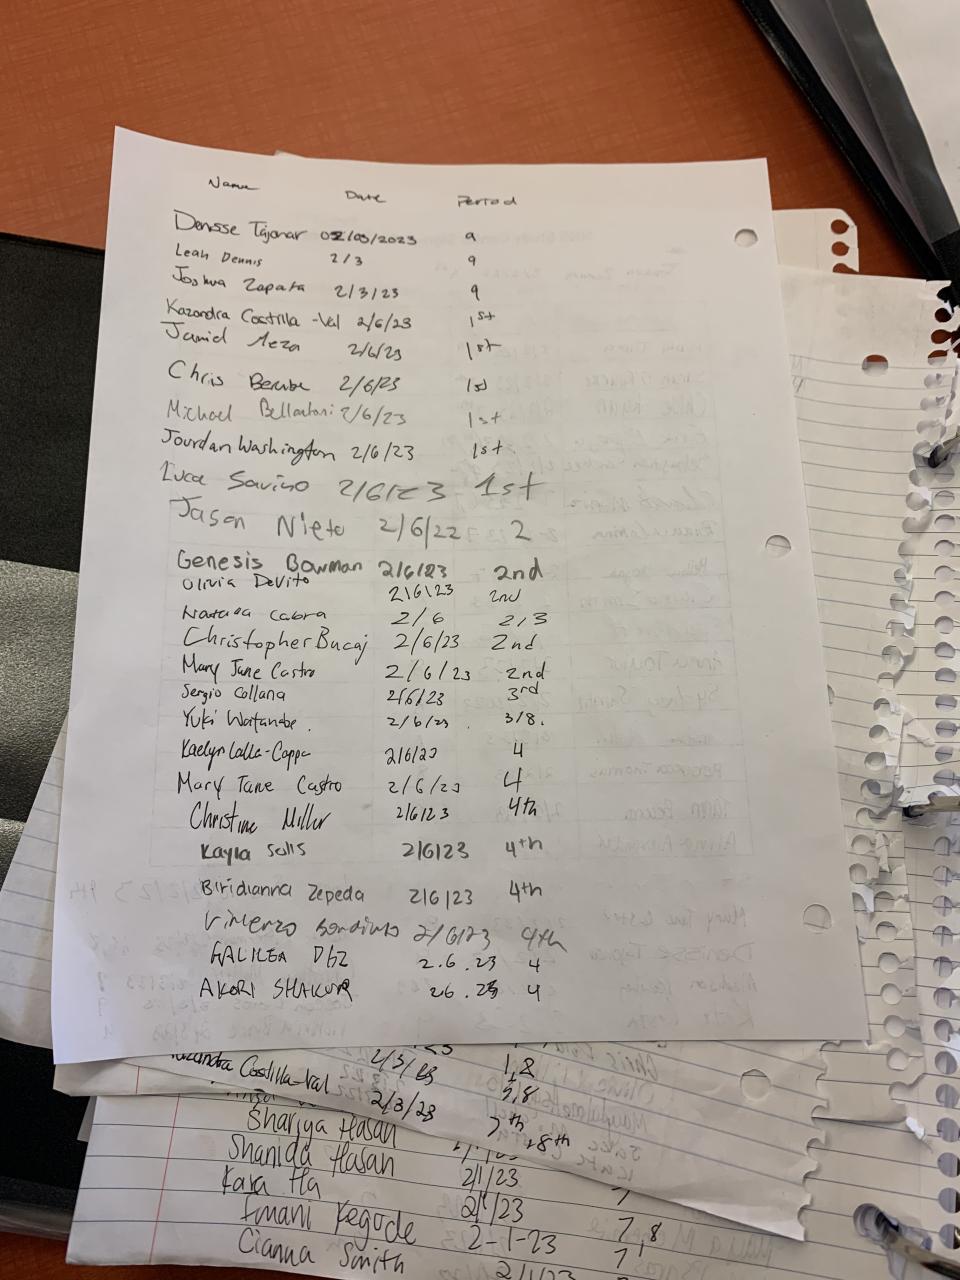 Name Date Period
Denisse Tajonar 02/03/2023 9
Leah Dennis 2/3 9
Joshua Zapata 2/3/23 9
Kazandra Castilla-Val 2/6/23 1st
Jamid Meza 2/6/23 1st
Chris Berube 2/6/23 1st
Michael 2/6/23 1st
Jourdan Washington 2/6/23 1st
Luca Savino 2/6/23 1st
Jason Nieto 2/6/22 2
Genesis Bowman 2/6/23 2nd
Olivia DeVito 2/6/23 2nd
Cabra 2/6 2,3
Christopher Bucaj 2/6/23 2nd
Mary Jane Castro 2/6/23 2nd
Sergio Collana 2/6/23 3rd
Yuki Watanabe. 2/6/23. 3/8.
Kaelyn Lalla-Coppa 2/6/23 4
Mary Jane Castro 2/6/23 4
Christine Miller 2/6/23 4th
Kayla Solis 2/6/23 4th
Biridianna Zepeda 2/6/23 4th
2/6/23 4th
GALILEA 2.6.23 4
AKORI SHAKUR 2.6.23 4
1,8
Kazandra Castilla-Val 2/3/23 5,8
2/3/23 7th +8th
Shariya Hasan
Shanida Hasan 2/1/23 7
Kara Ha 2/1/23 7,8
Imani Kegode 2-1-23 7
Cianna Smith 2/1/23